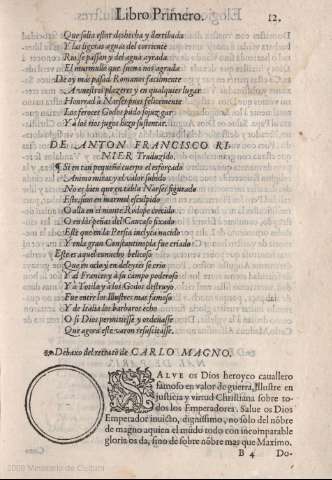 Libro Primero.
12.
Que solia estar deshecha y derribada
Y las ligeras aguas del corriente
Rio se passen y del agua ayrada
El murmullo que suena nos agrada
De oy mas passad Romanos facilmente
A vuestros plazeres y en qualquier lugar
Honrrad a Narses pues felicemente
Los feroces Godos pudo sojuzgar
Y a los rios jugos hizo sustentar.
DE ANTON FRANCISCO RI-
NIER Traduzido.
Si en tan pequeño cuerpo el esforçado
Animo miras y el valor subido
No es bien que en tabla Narses figurado
Este, sino en marmol esculpido
O alla en el monte Rodope
O en las peñas del Caucaso fixado
Este que en la Persia inclyta nacido
Y en la gran Constantinopla fue criado
Este es aquel eunucho belicoso
Que en ocio y en deleytes se crio
Y al Frances y a su campo poderoso
Y a Totila y a los Godos destruyo
Fue entre los Illustres mas famoso
Y de Italia los barbaros echo
O si Dios permitiesse y ordenasse
Que agora este varon resuscitasse.
Debaxo del retrato de CARLO MAGNO.
SALVE os Dios heroyco cauallero
famoso en valor de guerra, Illustre en
justicia y virtud Christiana sobre to-
dos los Emperadores. Salue os Dios
Emperador inuicto, dignissimo, no solo del nõbre
de magno aquien el mũdo todo con incomparable
gloria os da, sino de sobre nõbre mas que Maximo.
B 4
Do-
2009 Ministerio de Cultura